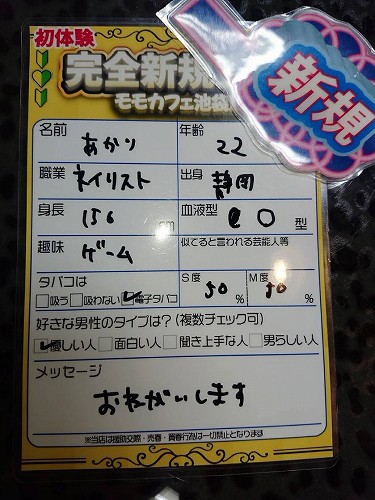 初体験
完全新規
モモカフェ池袋
新規
名前 あかり 年齢 22
職業 ネイリスト 出身 静岡
身長 156 cm 血液型 O 型
趣味 ゲーム 似てると言われる芸能人等
タバコは S度 M度
吸う 吸わない 電子タバコ 50 % 50 %
好きな男性のタイプは?(複数チェック可)
優しい人 面白い人 聞き上手な人 男らしい人
メッセージ
おねがいします
※当店は援助交際・売春・買春行為は一切禁止となります